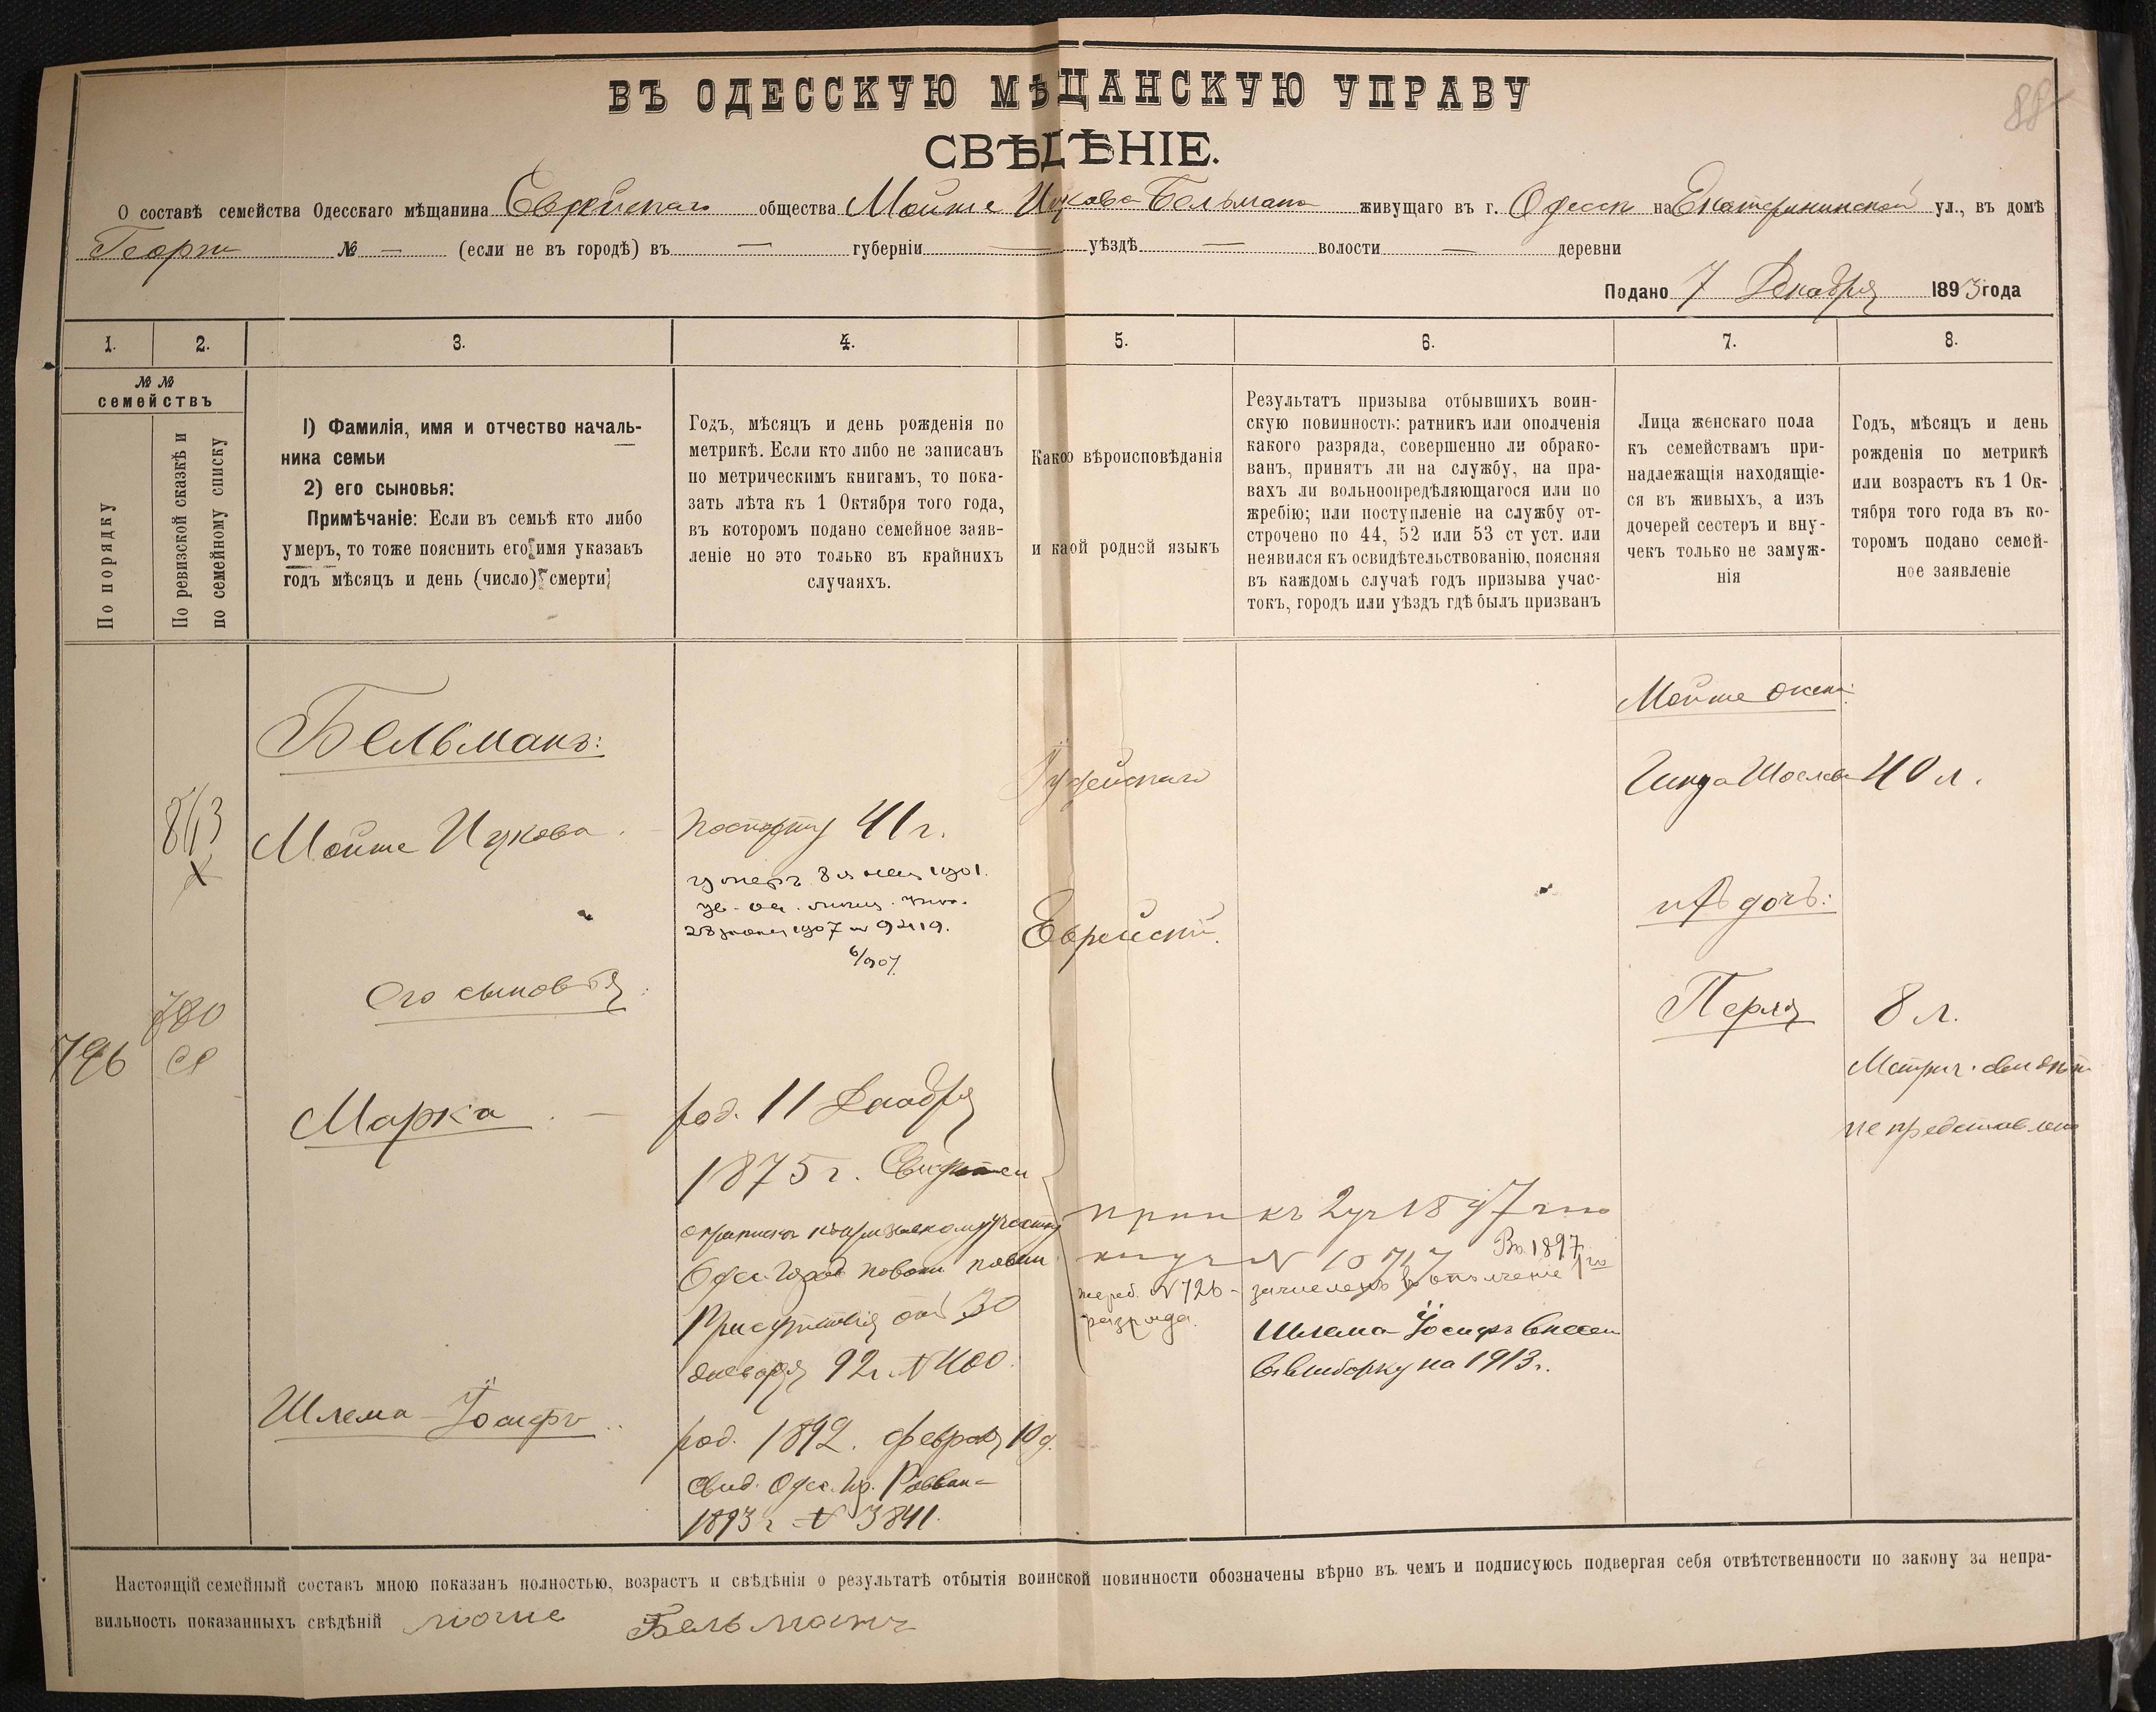 88
ВЪ ОДЕССКУЮ МѢЩАНСКУЮ УПРАВУ
СВѢДѢНІЕ.
О составѣ семейства Одесскаго мѣщанина Еврейскаго общества Мойше Ицкова Бельмана живущаго въ г. Одессѣ на Екатерининской ул., въ домѣ
Георги № — (если не въ городѣ) въ — губерніи — уѣздѣ — волости — деревни
Подано 7 Декабря 1893 года
1. 2. 3. 4. 5. 6. 7. 8.
№ №
семействъ
По порядку
По ревизской сказкѣ и
по семейному списку
1) Фамилія, имя и отчество началь-
ника семьи
2) его сыновья:
Примѣчаніе: Если въ семьѣ кто либо
умеръ, то тоже пояснить его имя указавъ
годъ мѣсяцъ и день (число) смерти
Годъ, мѣсяцъ и день рожденія по
метрикѣ. Если кто либо не записанъ
по метрическимъ книгамъ, то пока-
зать лѣта къ 1 Октября того года,
въ которомъ подано семейное заяв-
леніе но это только въ крайнихъ
случаяхъ.
Какое вѣроисповѣданія
и каой родной языкъ
Результатъ призыва отбывшихъ воин-
скую повинность: ратникъ или ополченія
какого разряда, совершенно ли обрако-
ванъ, принятъ ли на службу, на пра-
вахъ ли вольноопредѣляющагося или по
жребію; или поступленіе на службу от-
строчено по 44, 52 или 53 ст уст. или
неявился къ освидѣтельствованію, поясняя
въ каждомъ случаѣ годъ призыва учас-
токъ, городъ или уѣздъ гдѣ былъ призванъ
Лица женскаго пола
къ семействамъ при-
надлежащія находящіе-
ся въ живыхъ, а изъ
дочерей сестеръ и вну-
чекъ только не замуж-
нія
Годъ, мѣсяцъ и день
рожденія по метрикѣ
или возрастъ къ 1 Ок-
тября того года въ ко-
торомъ подано семей-
ное заявленіе
Бельманъ:
843
Мойше Ицкова
Паспорту 41 г.
умеръ 8 1901.
28 1907 № 9419.
6/907.
Іудейскаго
Еврейскій.
Мойше жена:
Гинда 40 л.
ихъ дочь:
Перля 8 л.
Метрич. свидѣт.
не представлено
Его сыновья:
780
796
Марка
род. 11 Декабря
1875 г.
о припискѣ къ призывному участку
Одес. Город. по воин. повин.
Присутствія отъ 30
92 г. № 400.
къ 2 уч 1897 г. по
Въ 1897 г.
жереб. № 726 – зачисленъ въ ополченіе
разряда.
Шлема Іосифъ внесен
въ выборку на 1913 г.
Шлема-Іосифъ
род. 1892. февраля 10 д.
Свид. Одес. Гор. Раввин-
1893 г. № 3841.
Настоящій семейный составъ мною показанъ полностью, возрастъ и свѣдѣнія о результатѣ отбытія воинской повинности обозначены вѣрно въ. чемъ и подписуюсь подвергая себя отвѣтственности по закону за непра-
вильность показанныхъ свѣдѣній Бельманъ